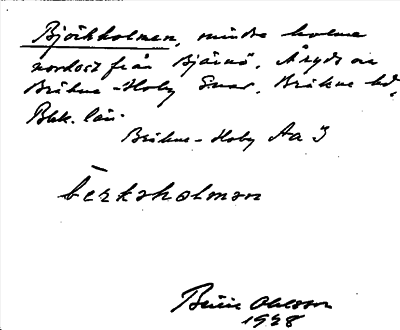 Björkholmen, mindre holme
nordost från Björnö, Åryds
Bräkne-Hoby Snar, Bräkne hd,
Blek. län
Bräkne-Hoby Aa 3
bërkaholmən
Ohlsson
1928